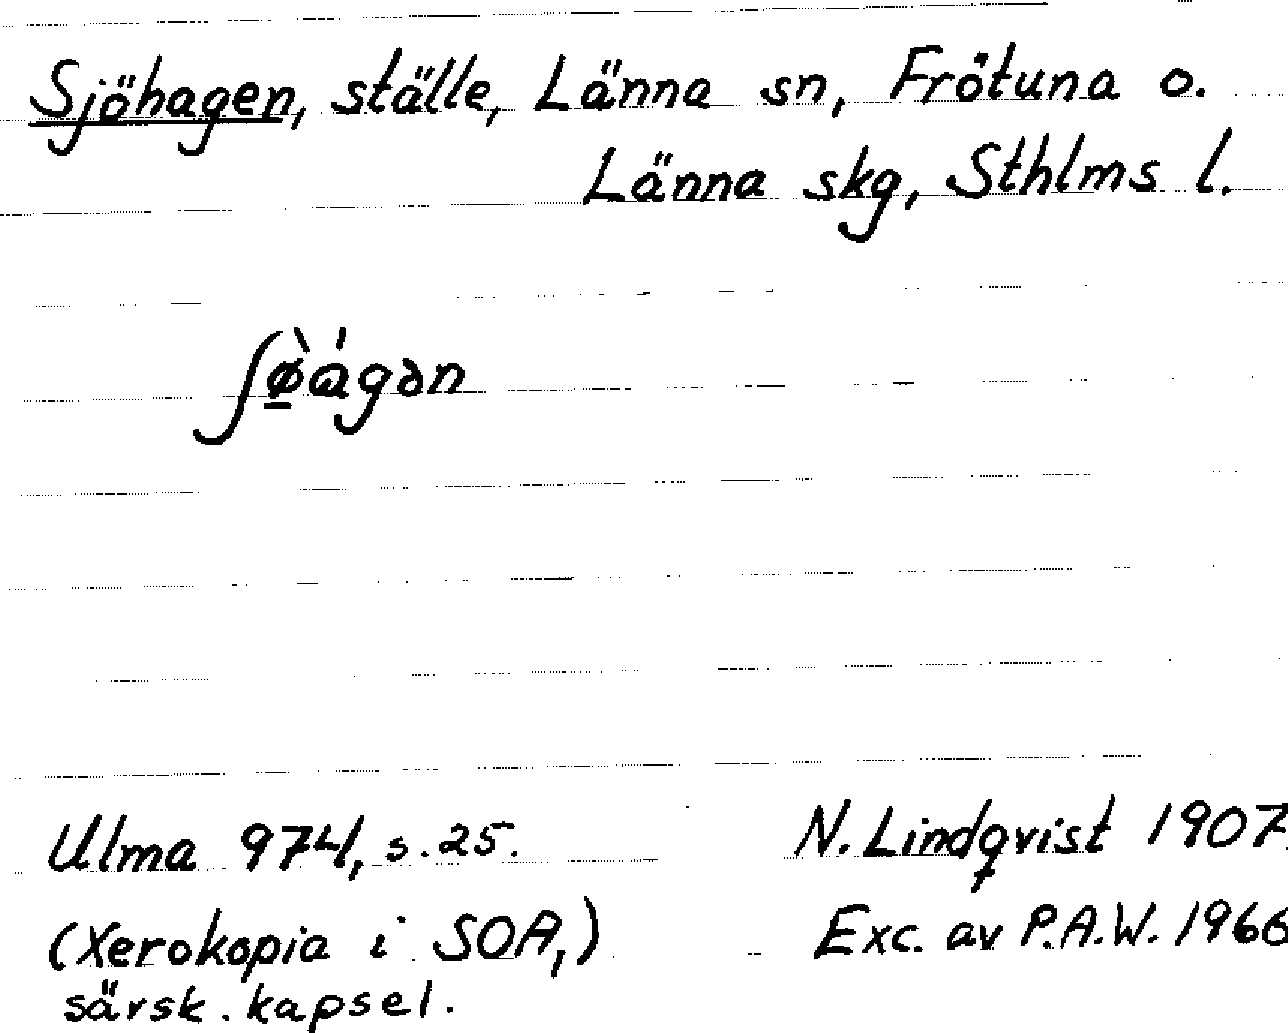 Sjöhagen, ställe, Länna sn, Frötuna o.
Länna skg, Sthlms l.
ʃø̠̀ágən
Ulma 974, s. 25.
N. Lindqvist 1907.
(Xerokopia i SOA,)
Exc. av P.A.W. 1966
särsk. kapsel.